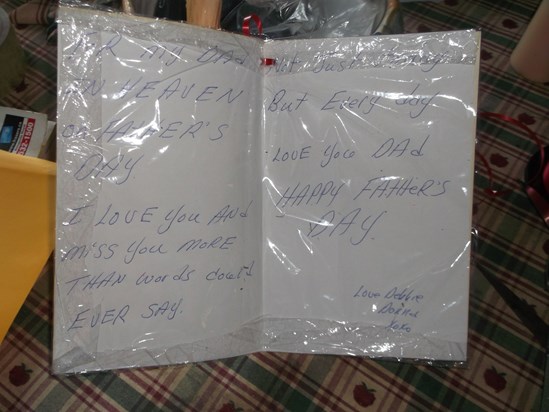 FOR MY DAD
IN HEAVEN
ON FATHER'S
DAY
I LOVE YOU AND
MISS YOU MORE
THAN words could
EVER SAY.
Not Just today
But Every day
LOVE YOU DAd
HAPPY FATHER'S
DAY.
Love Debbie
Donna